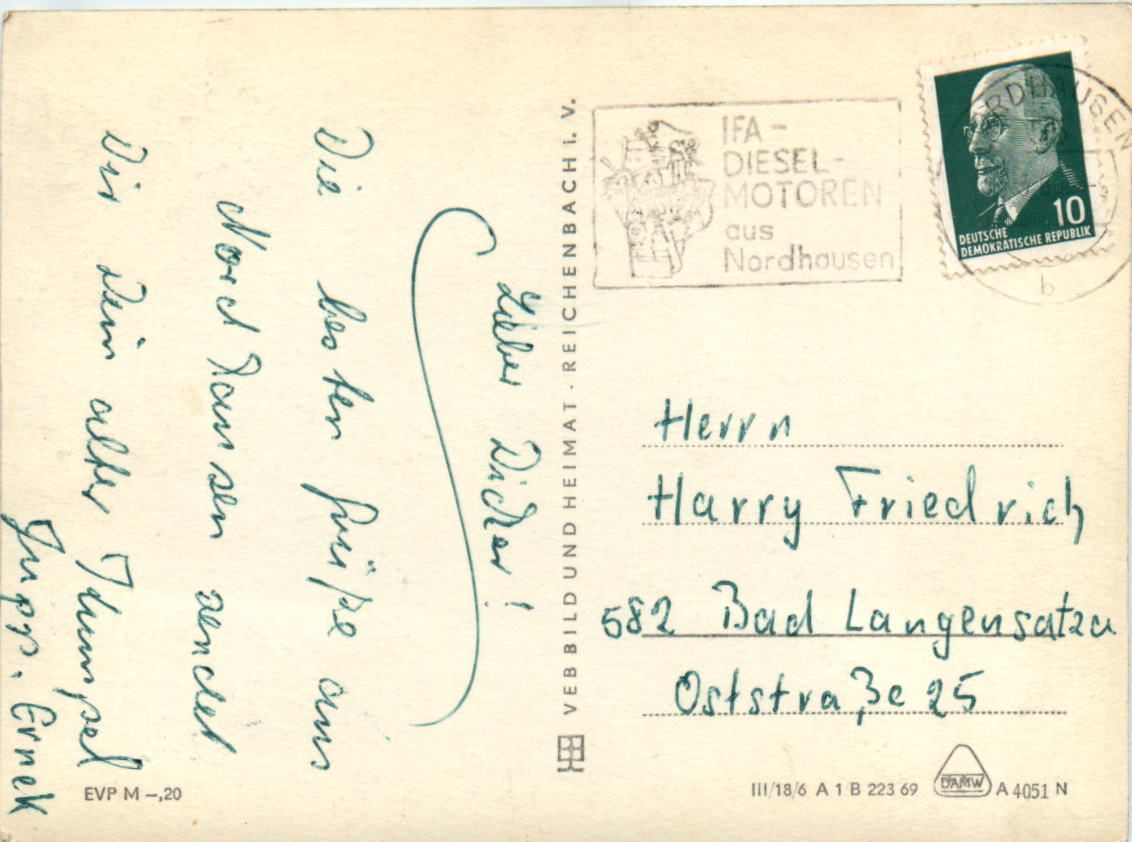 Lieber Dicker!
Die besten Grüße aus
Nordhausen sendet
Dir Dein alter
VEB BILD UND HEIMAT · REICHENBACH i. V.
EVP M –,20
IFA-
DIESEL-
MOTOREN
aus
Nordhausen
NORDHAUSEN
b
10
DEUTSCHE
DEMOKRATISCHE REPUBLIK
Herrn
Harry Friedrich
582 Bad Langensatza
Oststraße 25
III/18/6 A 1 B 223 69
DAMW
A 4051 N